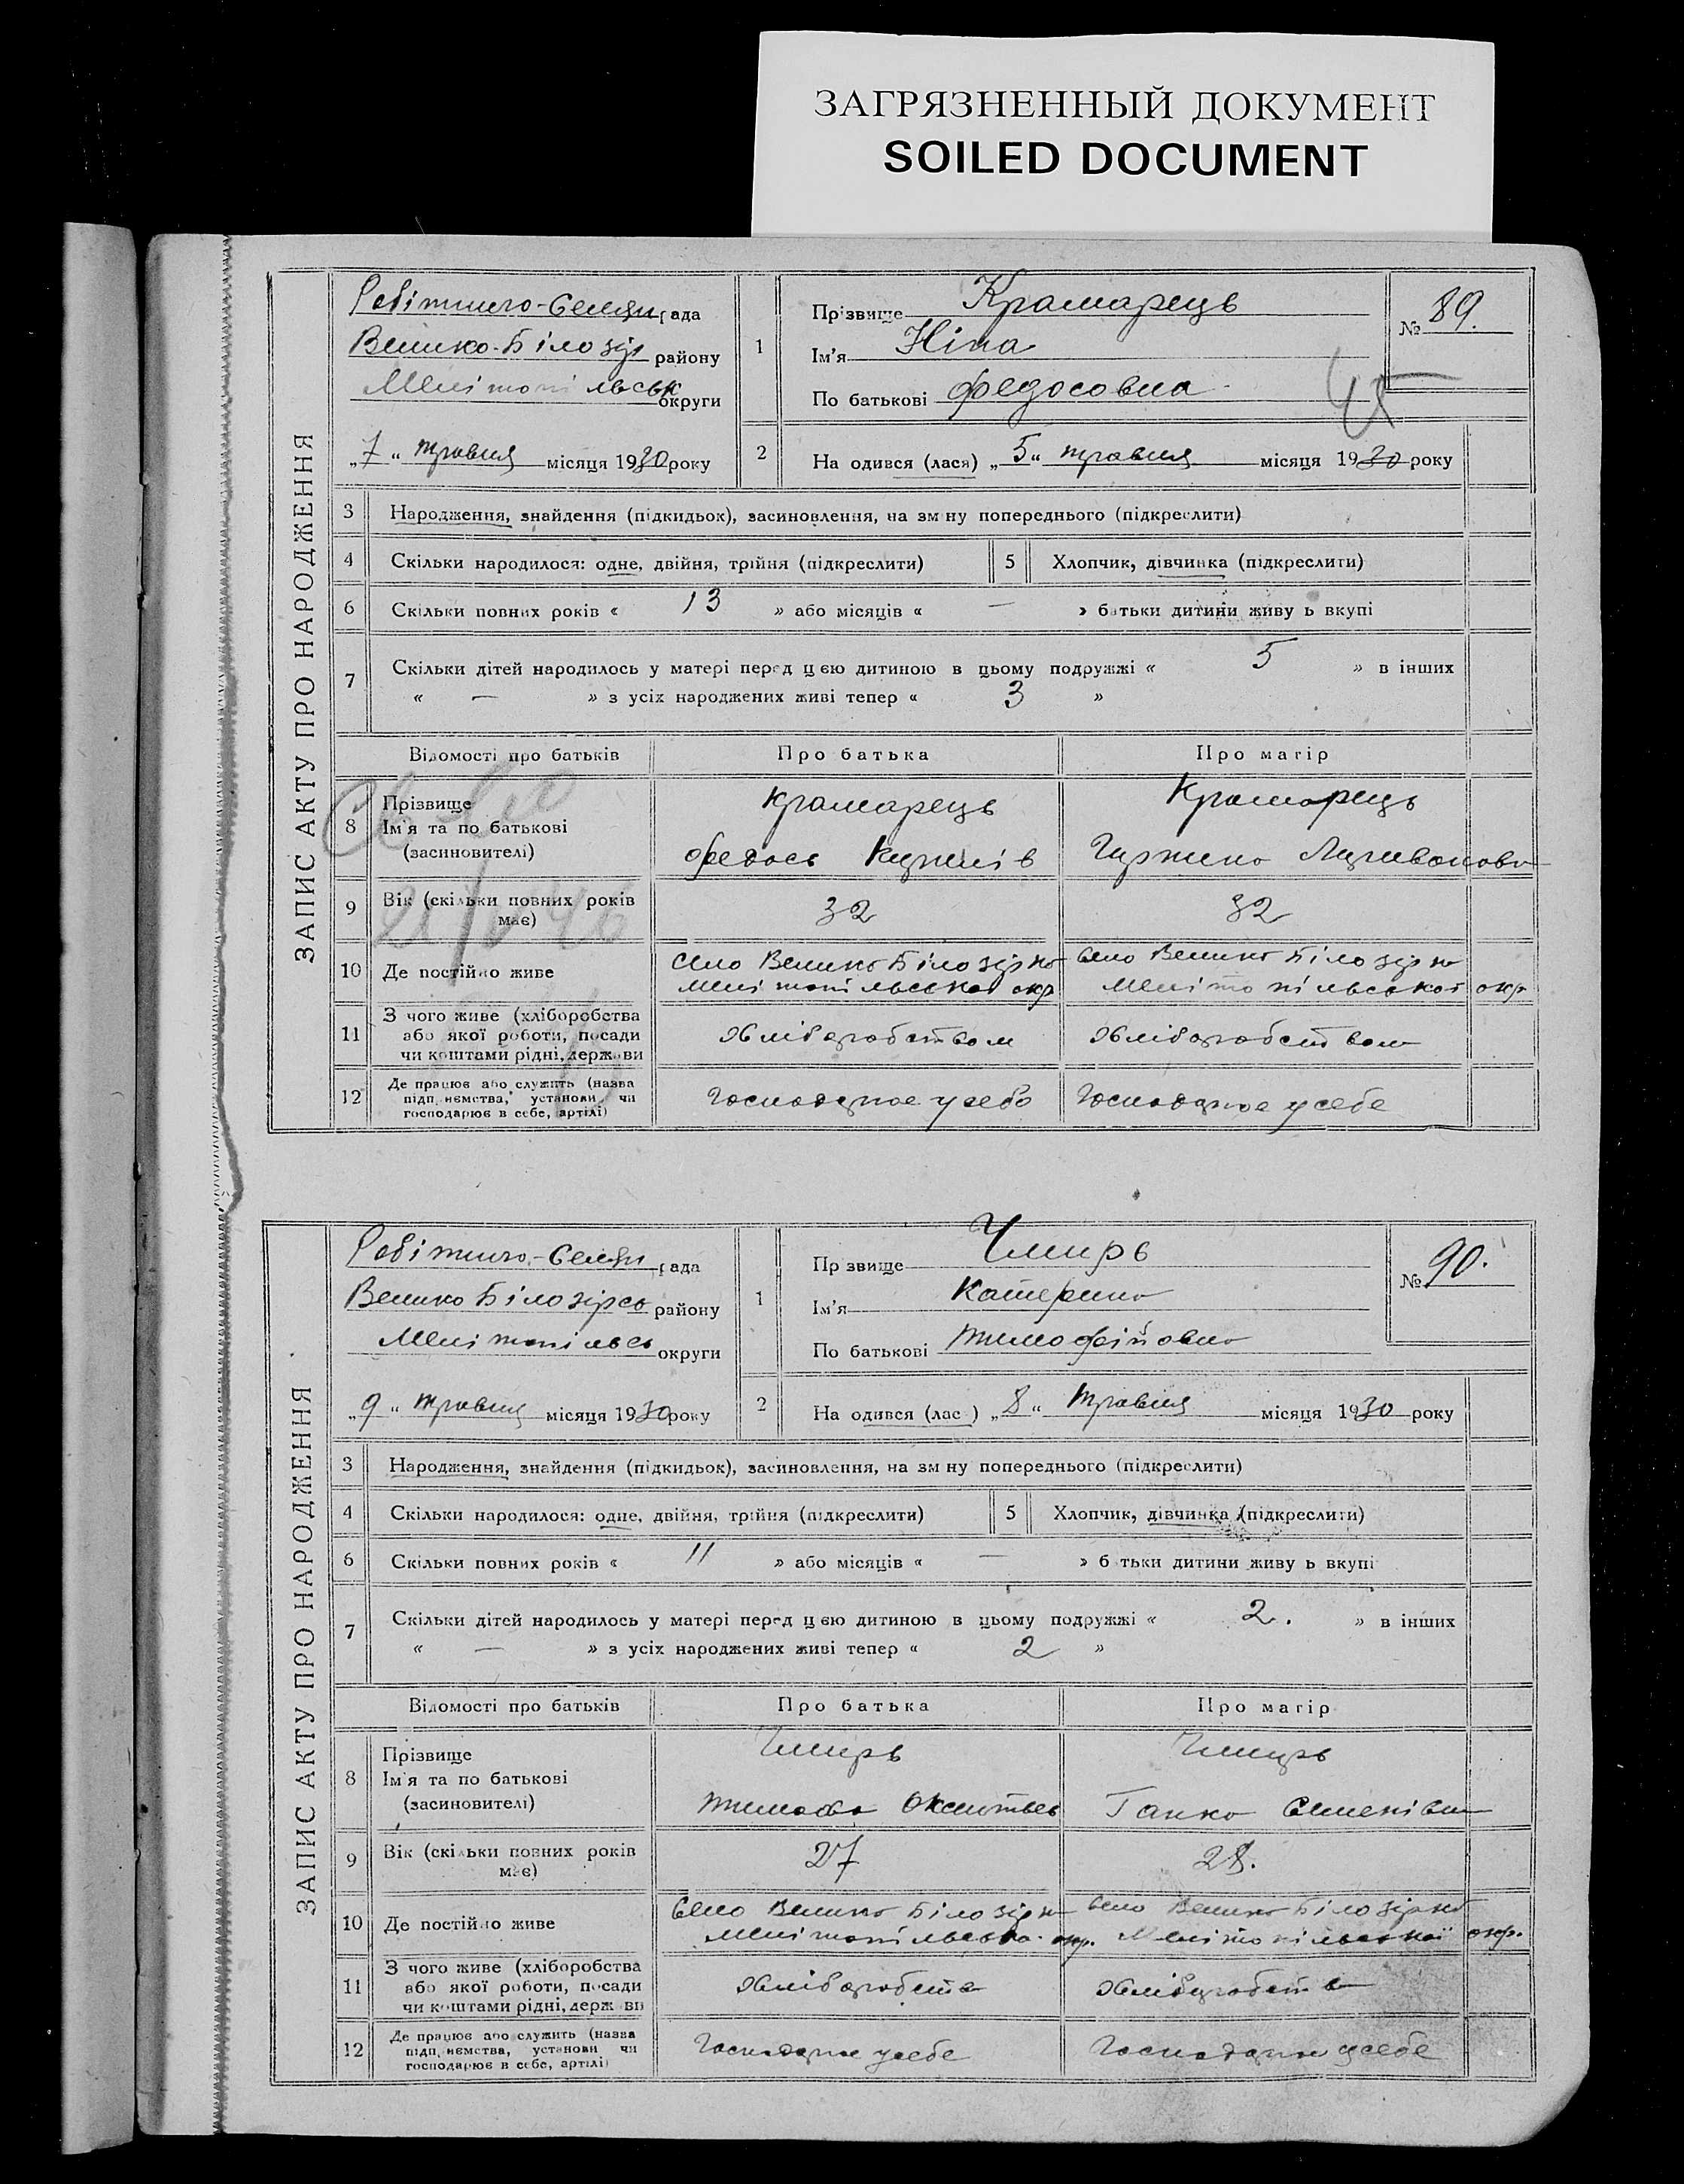 ЗАГРЯЗНЕННЫЙ ДОКУМЕНТ
SOILED DOCUMENT
ЗАПИС АКТУ ПРО НАРОДЖЕННЯ
Робітничо-Селян рада
Велико-Білозір району
Мелітопільськ округи
„7“ травня місяця 1930 року
1 Прізвище Крамарець
Ім'я Ніна
По батькові Федосовна
№ 89.
2 На одився (лася) „5“ травня місяця 1930 року
3 Народження, знайдення (підкидьок), засиновлення, на зміну попереднього (підкреслити)
4 Скільки народилося: одне, двійня, трійня (підкреслити) 5 Хлопчик, дівчинка (підкреслити)
6 Скільки повних років « 13 » або місяців « — » батьки дитини живу ь вкупі
7 Скільки дітей народилось у матері перед цією дитиною в цьому подружжі « 5 » в інших
« — » з усіх народжених живі тепер « 3 »
Відомості про батьків Про батька Про матір
8 Прізвище Крамарець Крамарець
Ім'я та по батькові
(засновителі) Федось
9 Вік (скільки повних років має) 32 32
10 Де постійно живе Село Велико Білозірка Село Велико Білозірка
Мелітопільської окр Мелітопільської окр
11 З чого живе (хліборобства
або якої роботи, посади
чи коштами рідні, держави хліборобством хліборобством
12 Де працює або служить (назва
підприємства, установи чи
господарює в себе, артілі) Господарює у себе Господарює у себе
ЗАПИС АКТУ ПРО НАРОДЖЕННЯ
Робітничо-Селян рада
Велико Білозірсь району
Мелітопільсь округи
„9“ травня місяця 1930 року
1 Прізвище Чмирь
Ім'я Катерина
По батькові Тимофійовна
№ 90.
2 На одився (лас ) „8“ травня місяця 1930 року
3 Народження, знайдення (підкидьок), засиновлення, на зміну попереднього (підкреслити)
4 Скільки народилося: одне, двійня, трійня (підкреслити) 5 Хлопчик, дівчинка (підкреслити)
6 Скільки повних років « 11 » або місяців « — » б тьки дитини живу ь вкупі
7 Скільки дітей народилось у матері перед цією дитиною в цьому подружжі « 2. » в інших
« — » з усіх народжених живі тепер « 2 »
Відомості про батьків Про батька Про матір
8 Прізвище Чмирь Чмирь
Ім'я та по батькові
(засиновителі) Ганна Семенівна
9 Вік (скільки повних років має) 27 28.
10 Де постійно живе Село Велико Білозірка Село Велико Білозірка
Мелітопільська окр. Мелітопільської окр.
11 З чого живе (хліборобства
або якої роботи, посади
чи коштами рідні, держави хліборобств хліборобств
12 Де працює або служить (назва
підприємства, установи чи
господарює в себе, артілі) Господарює у себе Господарює у себе